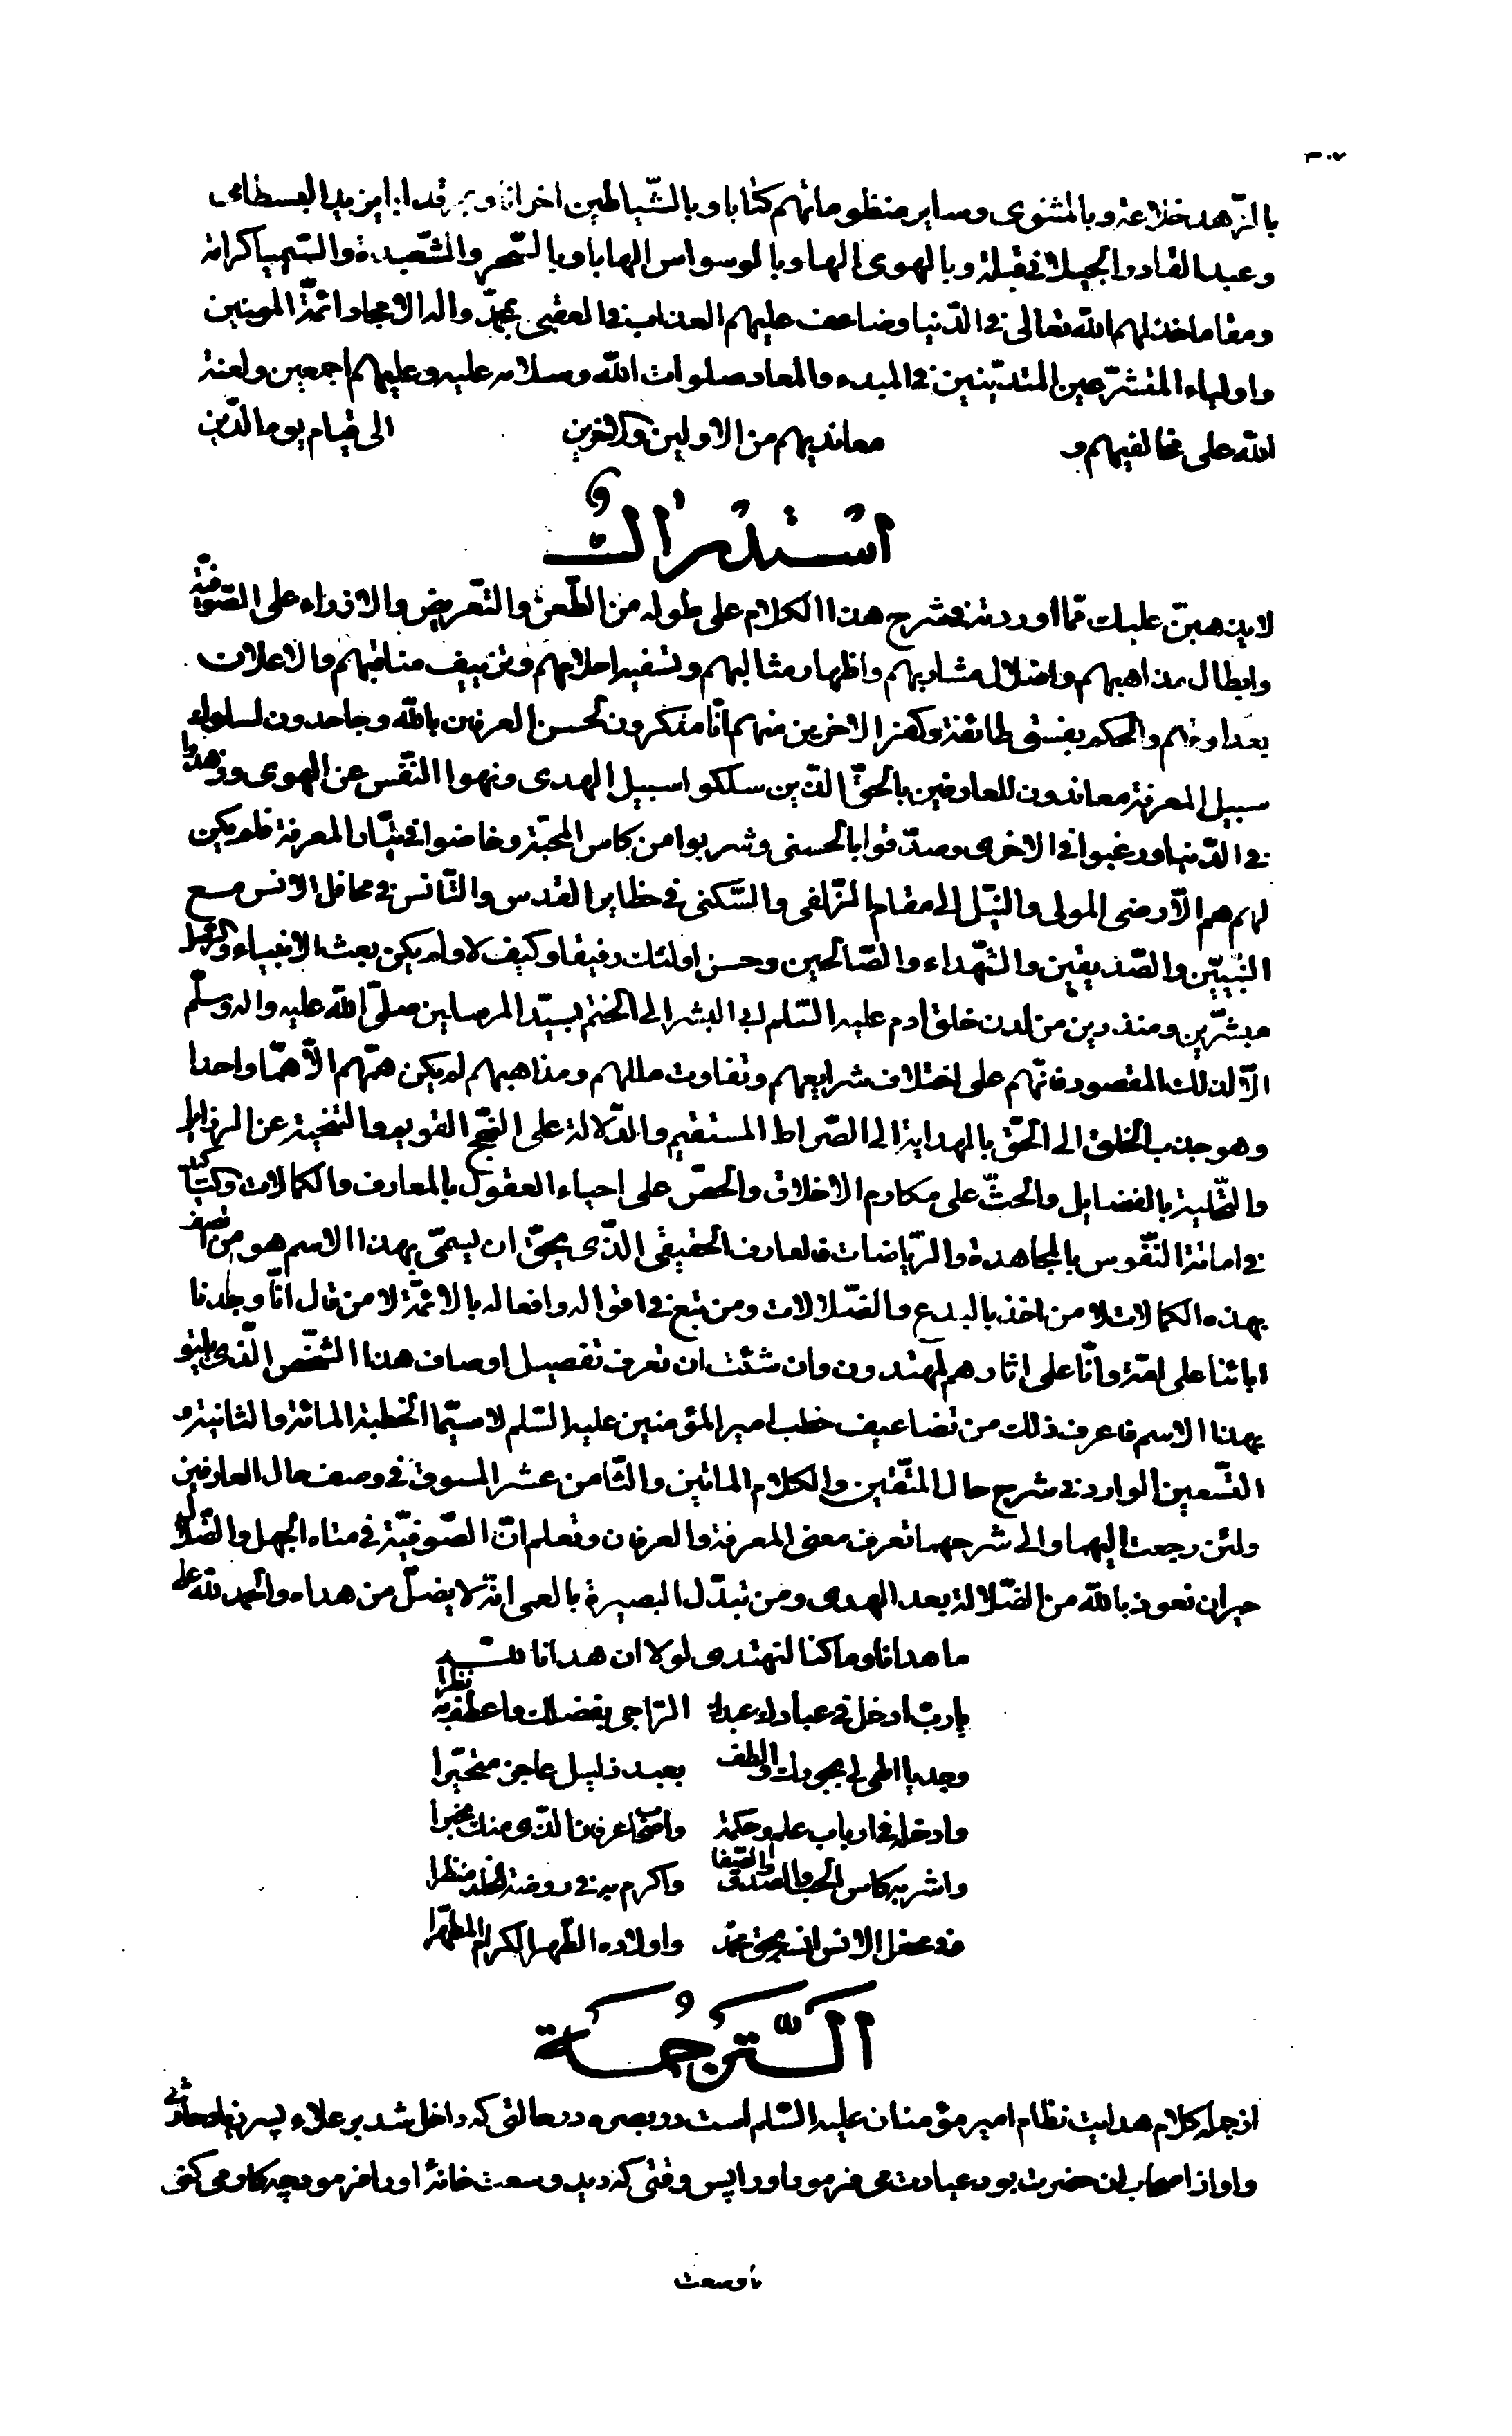 ٣٠٧
بالزّهد خلاعة و بالمثنوى و ساير منظوماتهم كتابا و بالشّياطين اخوانا و بمرقد ابا يزيد البسطامى
و عبد القادر الجيلانى قبلة و بالهوى الها و بالوسواس الهاما و بالسّحر والشّعبدة والسّيميا كرامة
و مقاما خذلهم اللّه تعالى فى الدّنيا و ضاعف عليهم العذاب فى العقبى بمحمّد واله الامجاد ائمّة المومنين
و اولياء المتشرّعين المتديّنين فى المبدء والمعاد صلوات اللّه وسلامه عليه وعليهم اجمعين ولعنة
اللّه على مخالفيهم و معانديهم من الاولين والاخرين الى قيام يوم الدّين
استدراك
لا يذهبنّ عليك ممّا اوردته فى شرح هذا الكلام على طوله من الطّعن والتّعريض والازراء على الصّوفيّة
وابطال مذاهبهم واضلال مشاربهم واظهار مثالبهم وتسفيه احلامهم وتزييف مناقبهم والاعلان
بعداوتهم والحكم بفسق طائفة وكفر الاخرين منهم انّا منكرون لحسن العرفان باللّه وجاحدون لسلوك
سبيل المعرفة معاندون للعارفين بالحقّ الذين سلكوا سبيل الهدى ونهوا النّفس عن الهوى وزهدوا
فى الدّنيا ورغبوا فى الاخرى وصدّقوا بالحسنى وشربوا من كاس المحبّة وخاضوا فى تيّار المعرفة فلم يكن
لهم همّ الّا رضى المولى والنّيل الى مقام الزّلفى والسّكنى فى حظاير القدس والتّانس فى محافل الانس مع
النّبيّين والصّديقين والشّهداء والصّالحين وحسن اولئك رفيقا وكيف لا ولم يكن بعث الانبياء والرسل
مبشّرين ومنذرين من لدن خلق ادم عليه السّلم ابى البشر الى الختم بسيّد المرسلين صلّى اللّه عليه واله وسلّم
الّا لذلك المقصود فانّهم على اختلاف شرايعهم وتفاوت مللهم ومذاهبهم لم يكن همّهم الّا همّا واحدا
وهو جذب الخلق الى الحقّ بالهداية الى الصّراط المستقيم والدّلالة على النّهج القويم والتخلية عن الرذايل
والتّحلية بالفضايل والحثّ على مكارم الاخلاق والحضّ على احياء العقول بالمعارف والكمالات
فى اماتة النّفوس بالمجاهدة والرّياضات فالعارف الحقيقى الذّى يحقّ ان يسمّى بهذا الاسم هو من اتّصف
بهذه الكمالات لا من اخذ بالبدع والضّلالات ومن تبع فى اقواله وافعاله بالائمّة لا من قال انّا وجدنا
ابائنا على امّة وانّا على اثارهم لمهتدون وان شئت ان تعرف تفصيل اوصاف هذا الشّخص الّذى يليق
بهذا الاسم فاعرف ذلك من تضاعيف خطب امير المؤمنين عليه السّلم لا سيّما الخطبة المائة والثانية و
التّسعين الوارد فى شرح حال المتّقين والكلام المائتين والثّامن عشر المسوق فى وصف حال العارفين
ولئن رجعت اليهما والى شرحهما تعرف معنى المعرفة والعرفان وتعلم انّ الصّوفيّة فى متاه الجهل والضّلال
حيران نعوذ باللّه من الضّلالة بعد الهدى ومن تبدّل البصيرة بالعمى انّه لا يضلّ من هداه والحمد للّه على
ما هدانا وما كنا لنهتدى لولا ان هدانا اللّه
يا ربّ ادخل فى عبادك عبدك الرّاجى بفضلك واعطف به نظرا
وجد يا الهى لى بجودك والطف بعبد ذليل عاجز متحيّرا
وادخله فى ارباب علم وحكمة واصحاب عرفان الّذى منك مخبرا
واشربه كاس الحب والصدق والصّفا واكرم به فى روضة الخلد منظرا
وفى محفل الانس انسه بحقّ محمّد واولاده الطّهر الكرام المطهّرا
التّرجمة
از جمله كلام هدايت نظام امير مؤمنان عليه السّلم است در بصره در حالتى كه داخل شد بر علاء پسر زياد حارثى
و او از اصحاب ان حضرت بود عيادت مى فرمود او را پس وقتى كه ديد وسعت خانۀ او را فرمود چه كار مى كنى
با وسعت